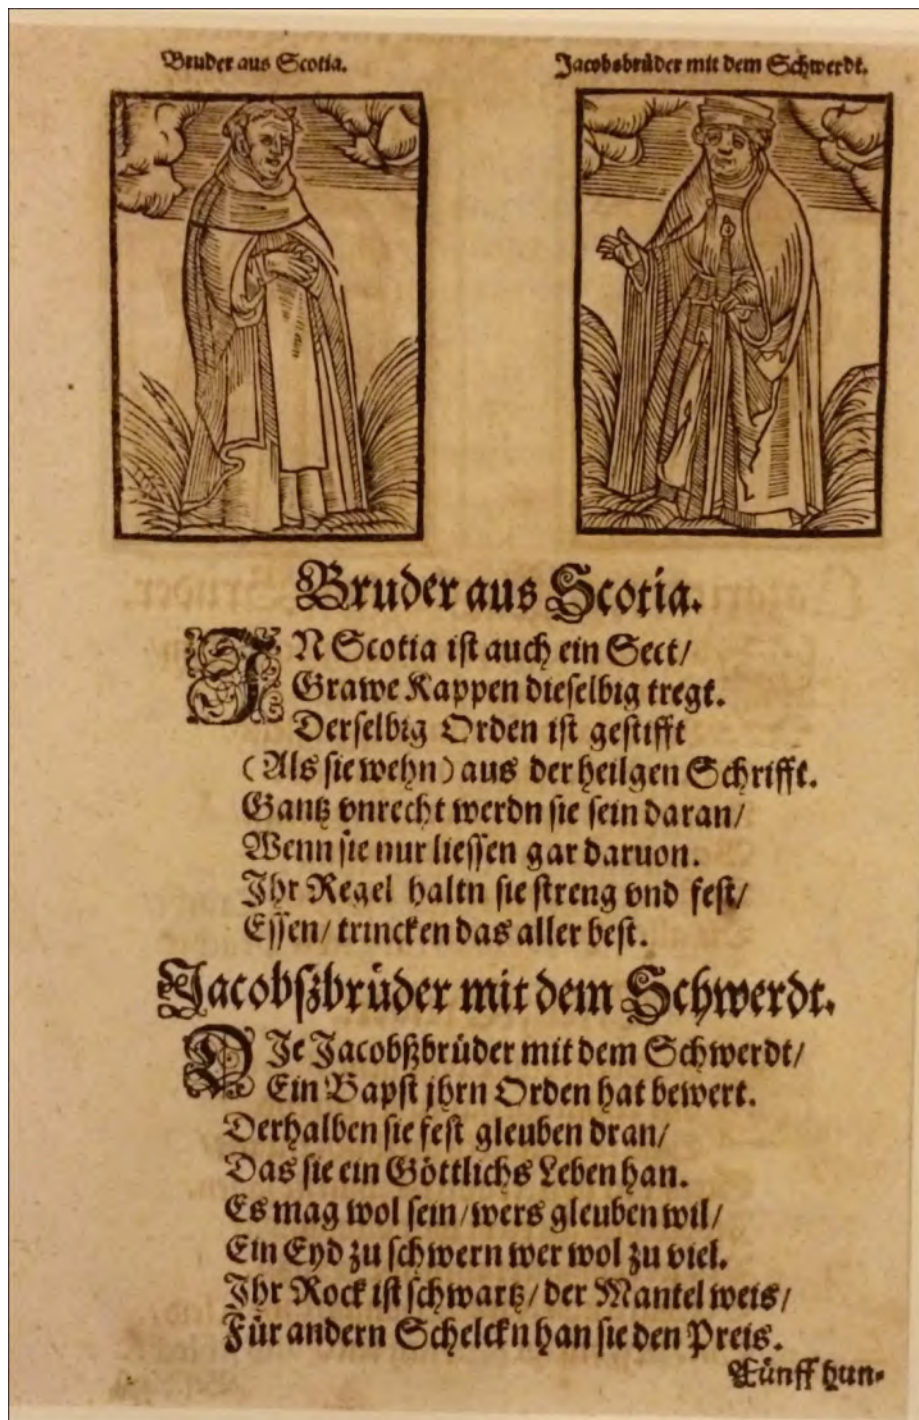 Bruder aus Scotia.
Jacobsbrüder mit dem Schwerdt.
Bruder aus Scotia.
IN Scotia ist auch ein Sect/
Grawe Kappen dieselbig tregt.
Derselbig Orden ist gestifft
(Als sie wehn) aus der heilgen Schrifft.
Gantz vnrecht werdn sie sein daran/
Wenn sie nur liessen gar daruon.
Ihr Regel haltn sie streng vnd fest/
Essen/ trincken das aller best.
Jacobsßbrüder mit dem Schwerdt.
DJe Jacobßbrüder mit dem Schwerdt/
Ein Bapst jhrn Orden hat bewert.
Derhalben sie fest gleuben dran/
Das sie ein Göttlichs Leben han.
Es mag wol sein/ wers gleuben wil/
Ein Eyd zu schwern wer wol zu viel.
Ihr Rock ist schwartz/ der Mantel weis/
Für andern Schelckn han sie den Preis.
Fünff hun-